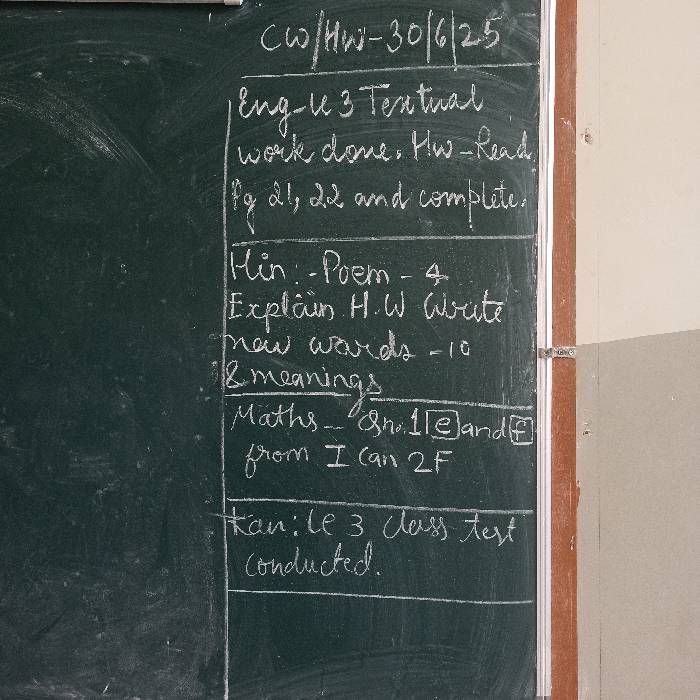 CW/HW-30/6/25
Eng-Le 3 Textual
work done. HW-Read
Pg 21, 22 and complete.
Hin:-Poem-4
Explain H.W Write
new words-10
& meanings
Maths- Qn.1 e and f
from I Can 2F
Kan: Le 3 class test
conducted.